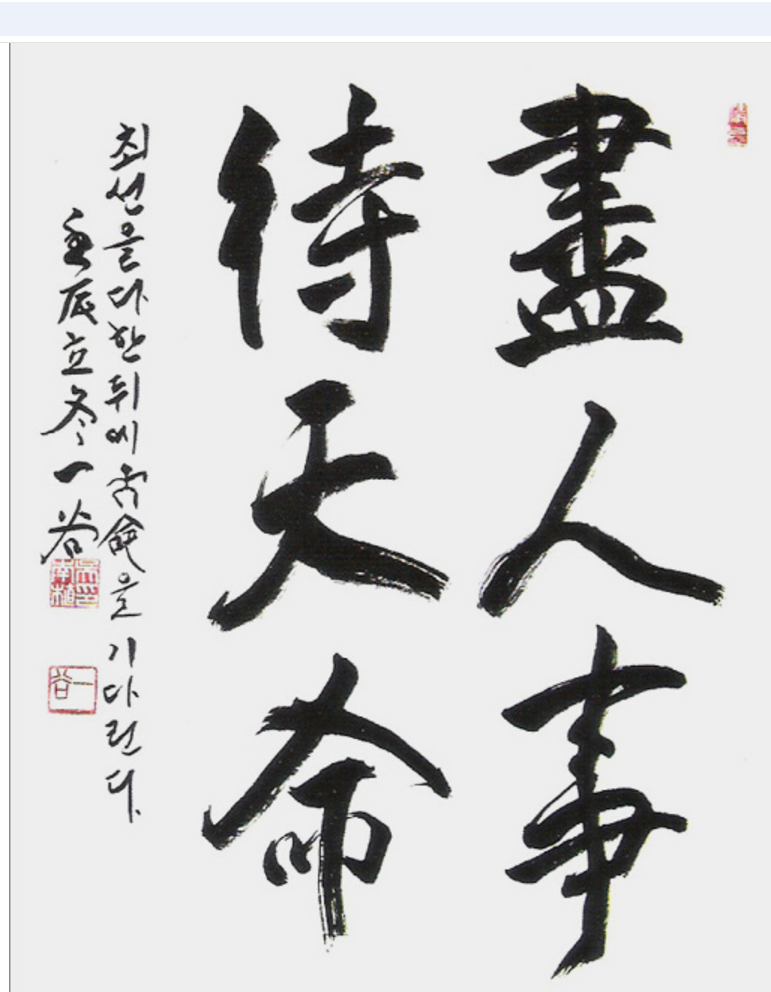 盡人事
待天命
최선을 다한 뒤에 命을 기다린다
辰立冬一谷
一谷